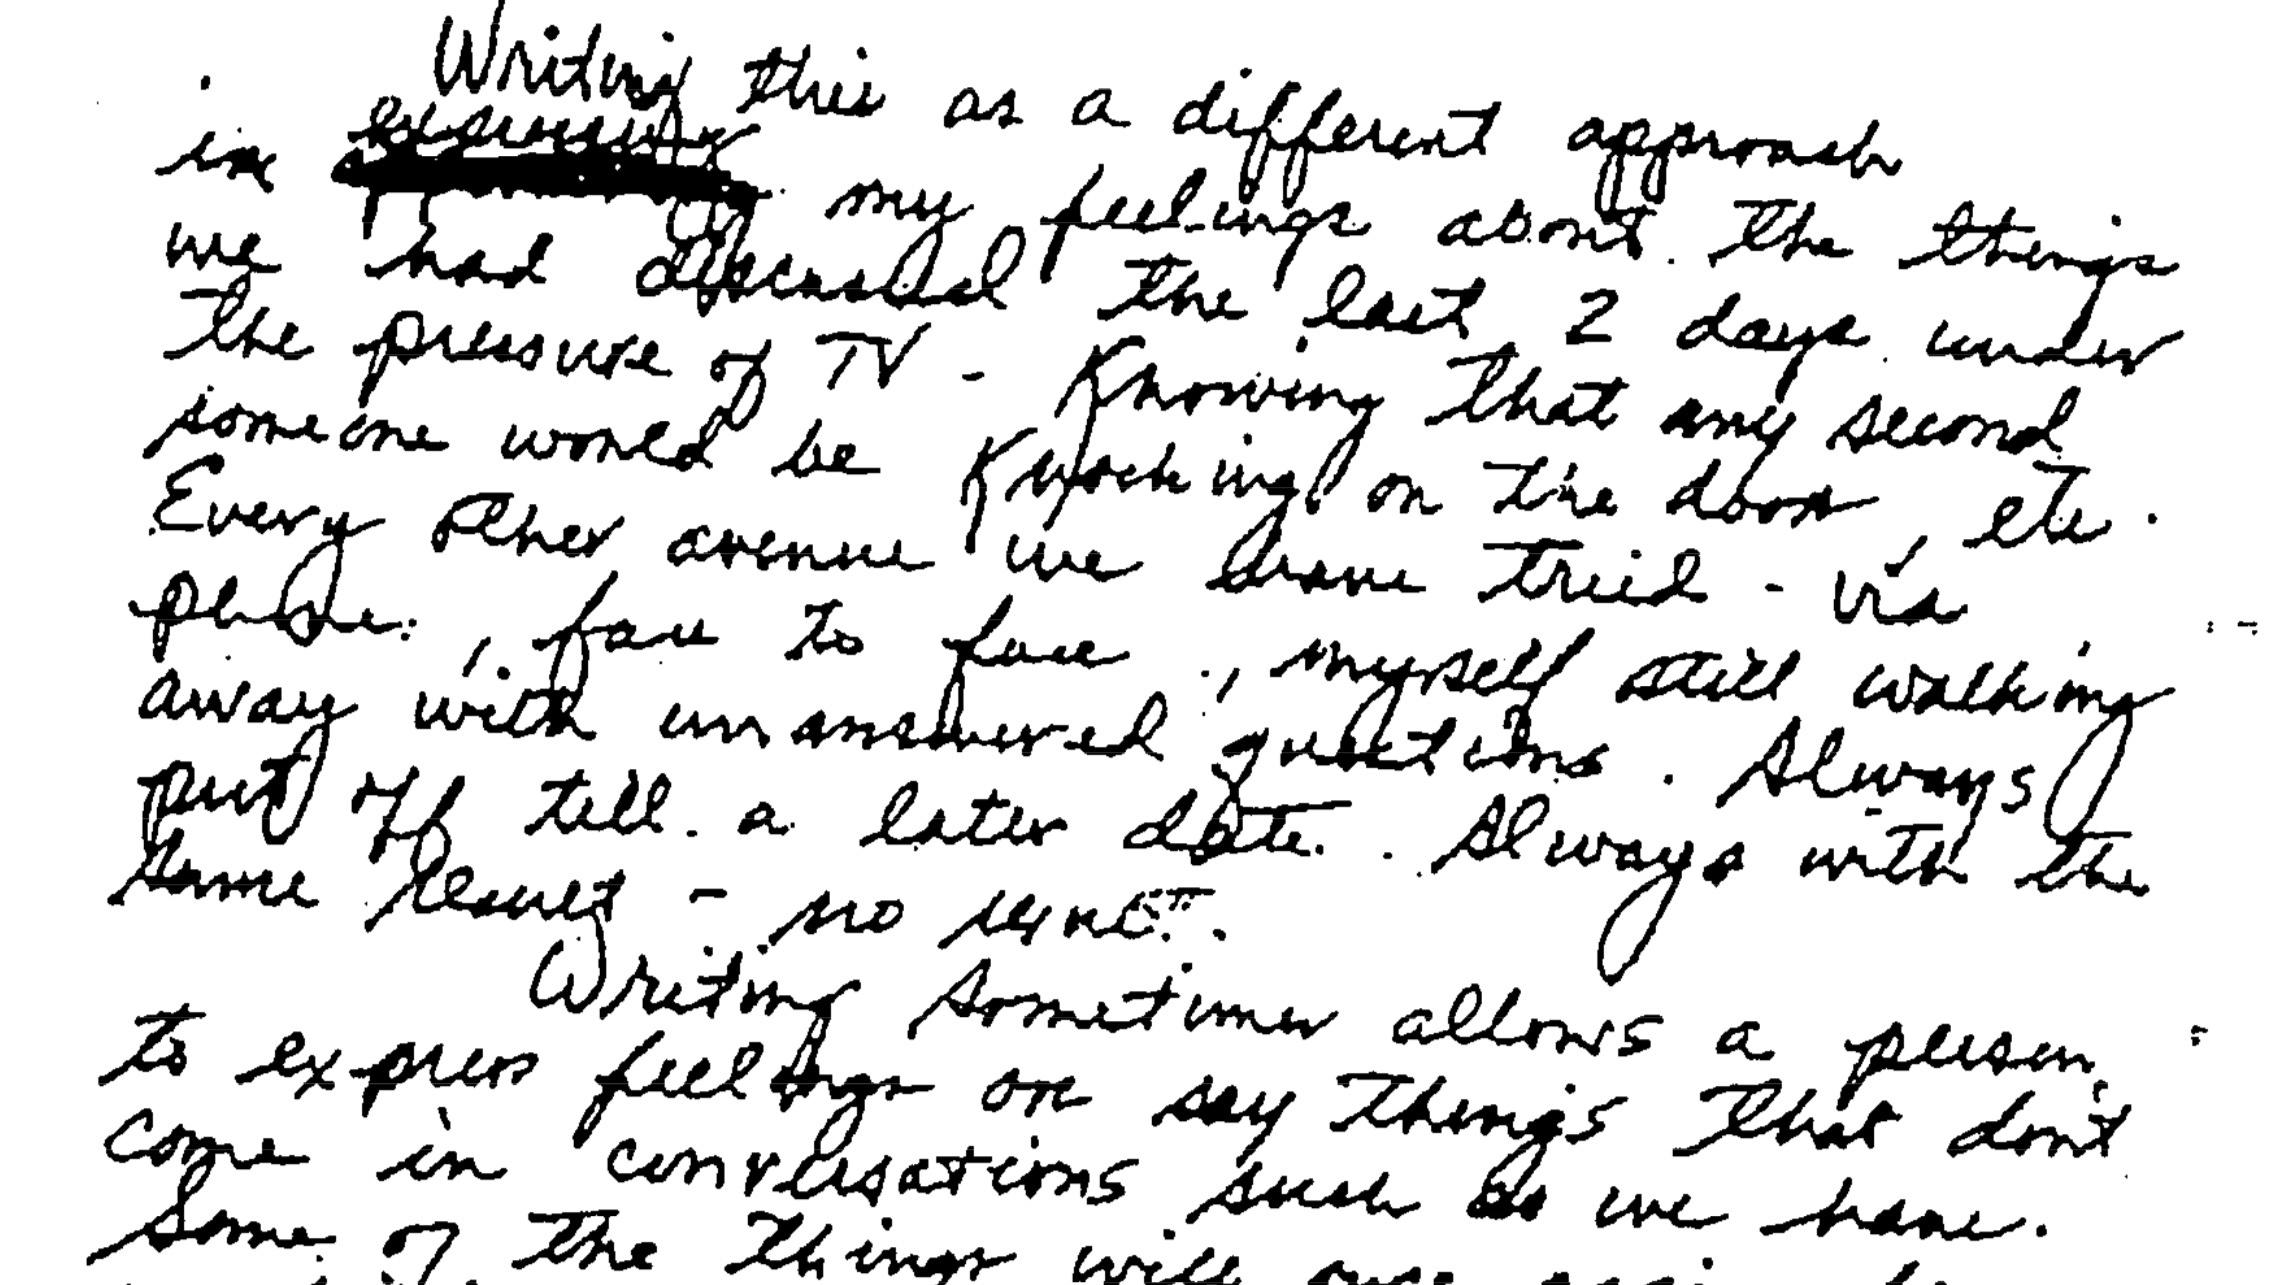 Writing this as a different approach
in expressing my feelings about the things
we had discussed the last 2 days under
the pressure of TV - Knowing that any second
someone would be Knocking on the door, etc.
Every other avenue we have tried - via
phone, face to face, myself still walking
away with unanswered questions. Always
put off till a later date. Always with the
same result - no
Writing sometimes allows a person
to express feelings or say things that don't
come in conversations such as we have.
Some of the things will